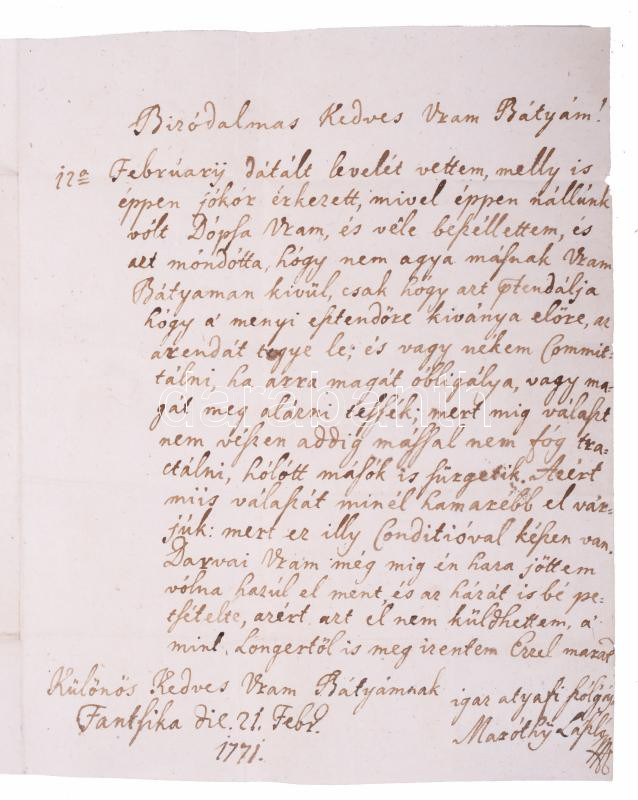 Bizódalmas Kedves Uram Bátyám!
12a Februárij dátált levelét vettem, melly is
éppen jókór érkezett, mivel éppen nállúnk
vólt Dópsa Uram, és véle beszéllettem, és
azt móndótta, hógy nem agya másnak Uram
Bátyaman kivül, csak hógy azt ptendálja
hógy á menyi esztendőre kiványa előre, az
arendát tegye le; és vagy nékem Commit-
tálni, ha arra magát óbligálya, vagy ma-
gát meg alázni tessék; mert mig választ
nem vészen addig mással nem fóg tra-
ctálni, hólótt másók is sürgetik. Azért
miis válaszát minél hamarébb el vár-
júk: mert ez illy Conditióval készen van.
Darvai Uram még mig én haza jöttem
vólna hazúl el ment, és az házát is bé pe-
tsételte, azért azt el nem küldhettem, á
mint Longertől is meg izentem Ezzel maradt
Különös Kedves Uram Bátyámnak
igaz atyafi szólgája
Fantsika die. 21. Febr.
Maróthy László
1771.
darabanth